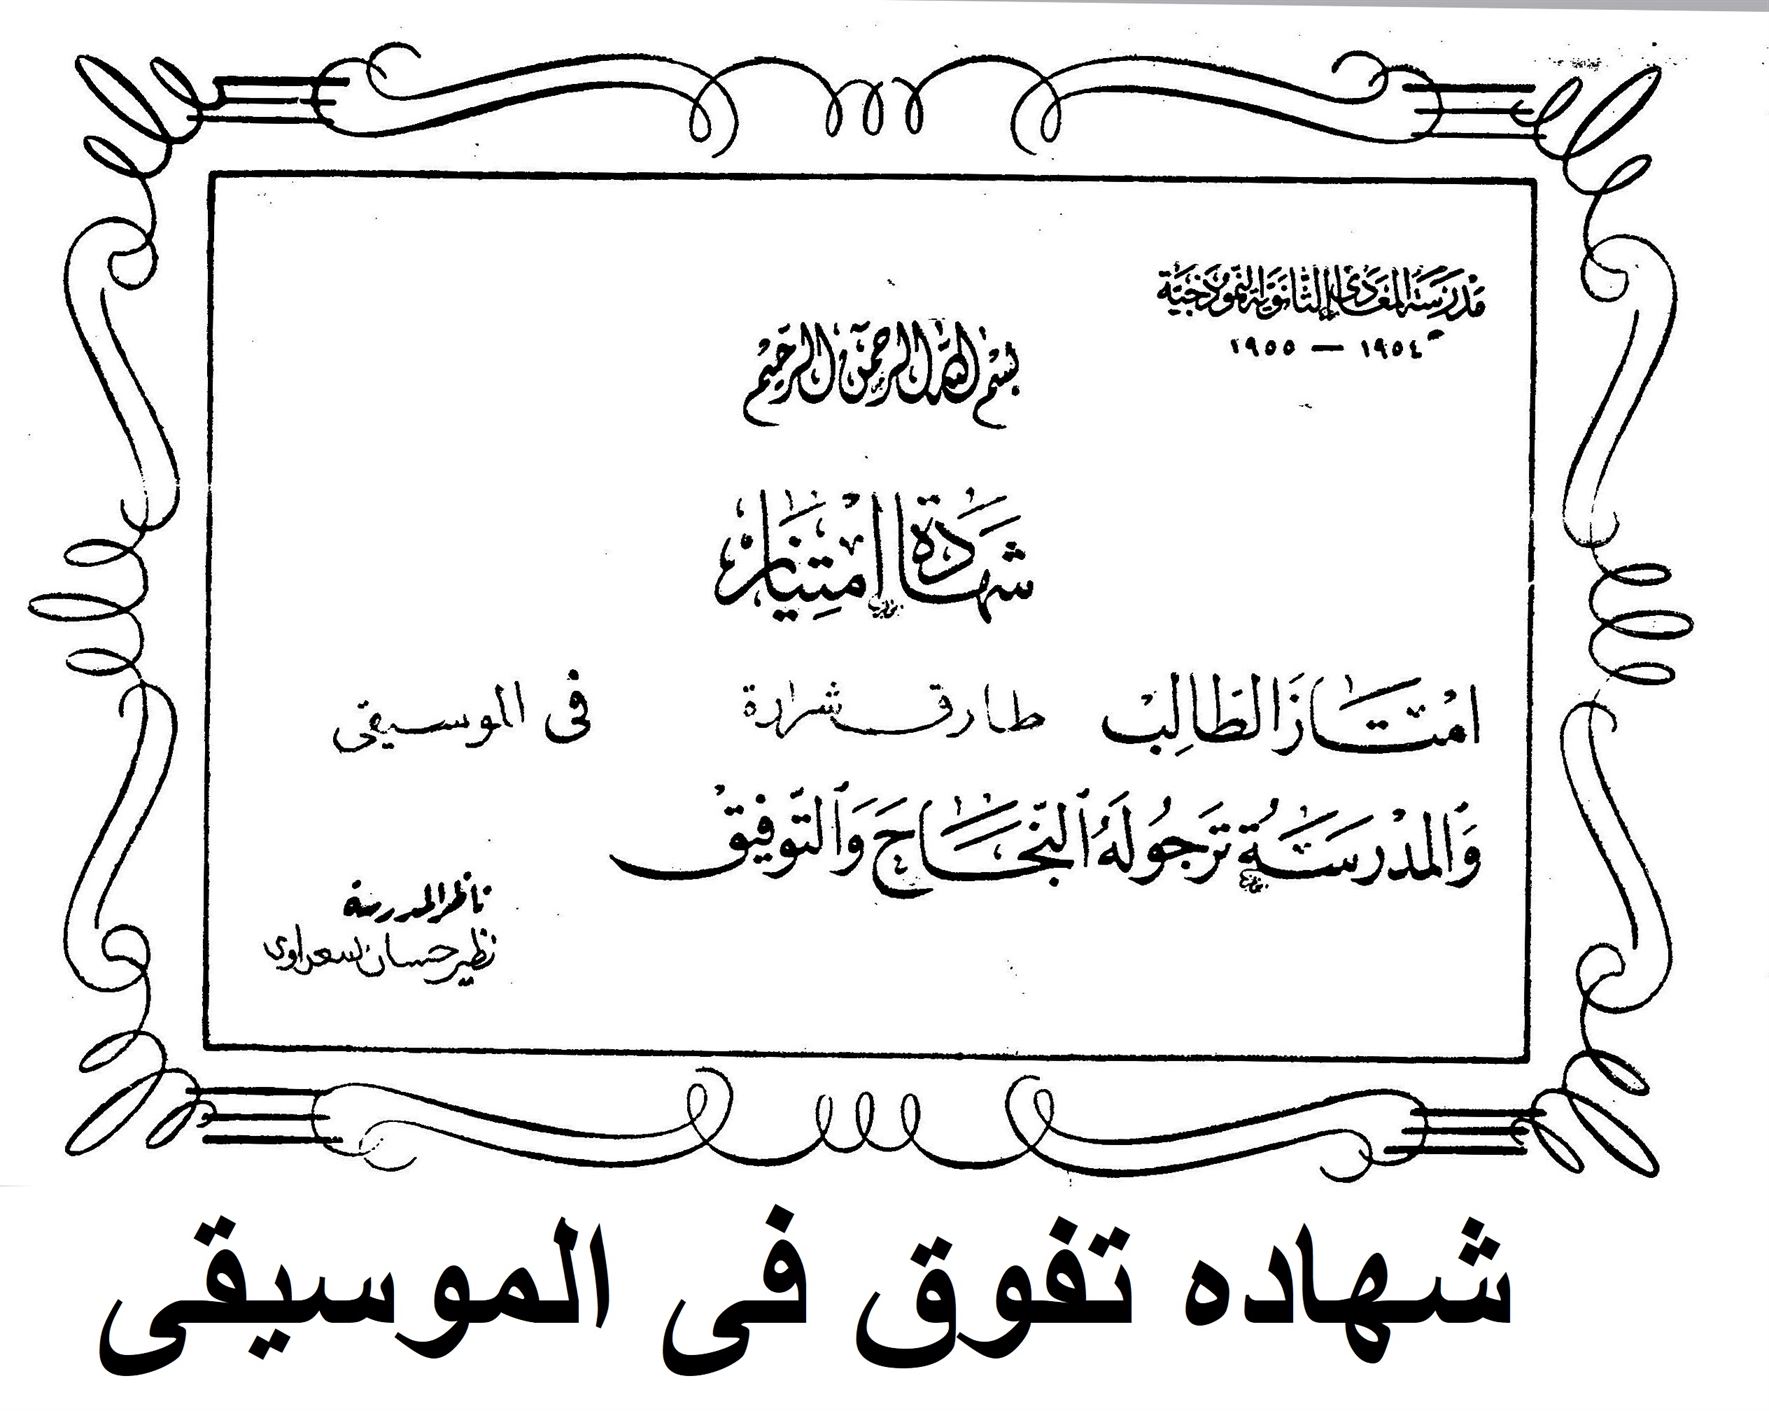 مدرسة المعادى الثانوية النموذجية
١٩٥٤ — ١٩٥٥
بسم الله الرحمن الرحيم
شهادة امتياز
امتاز الطالب طارق شرارة فى الموسيقى
والمدرسة ترجو له النجاح والتوفيق
ناظر المدرسة
نظير حسان سعداوى
شهاده تفوق فى الموسيقى